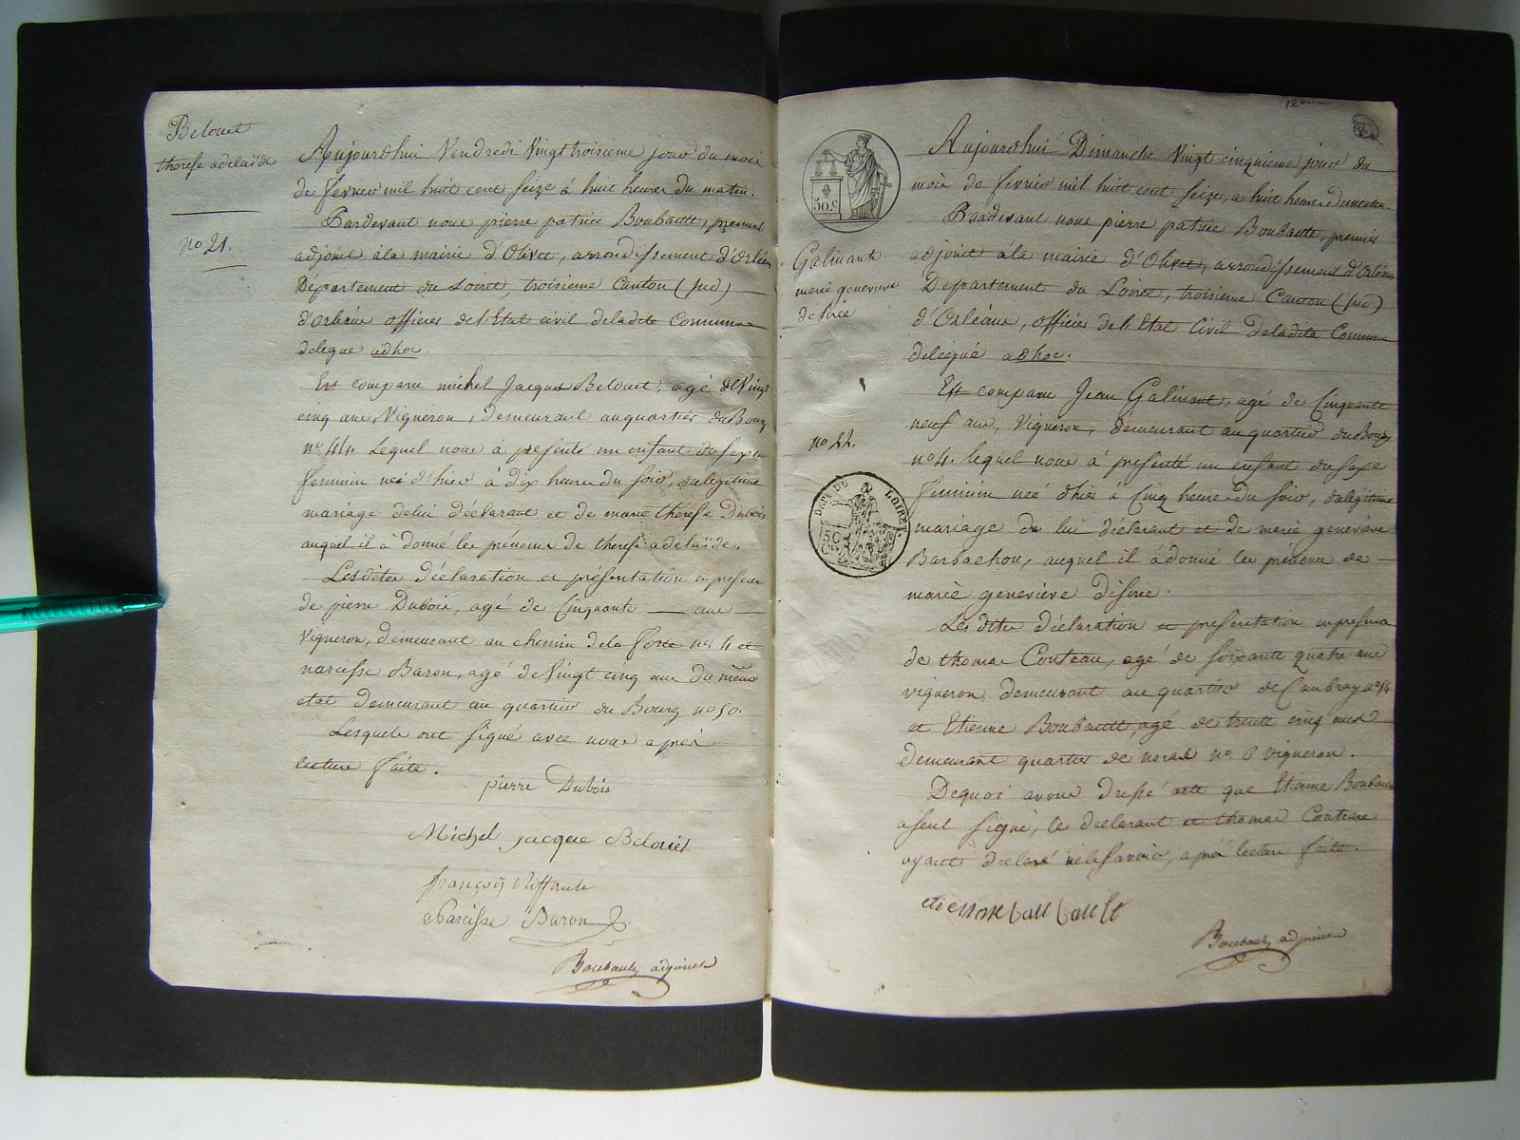 Belouet
therese adelaïde
no 21.
Aujourdhui Vendredi Vingt troisieme jour du mois
de fevrier mil huit cent seize à huit heures du matin.
Pardevant nous pierre patrice Boubault, premier
adjoint à la mairie d'Olivet, arrondissement d'Orléans
Departement du Loiret, troisieme Canton (sud)
d'orleans officier de l'Etat civil deladite Commune
delegué adhoc
Est comparu michel Jacques Belouet, agé de Vingt
cinq ans, Vigneron, demeurant au quartier du Bourg
no 44. Lequel nous à presenté un enfant du sexe
feminin neé d'hier à dix heures du soir, de legitime
mariage de lui déclarant et de marie thérése Dubois
auquel il à donné les prénoms de therese adelaïde.
Lesdites déclaration et présentation en presence
de pierre Dubois, agé de Cinquante ans
Vigneron, demeurant au chemin de la forte no 4 et
narcisse Baron, agé de Vingt cinq ans du même
état demeurant au quartier du Bourg no 50.
Lesquels ont signé avec nous après
lecture faite.
pierre Dubois
Michel jacque Belouet
françois Riffault
Narcisse Baron
Boubault adjoint
50 c
Galinant
marie genevieve
desiréé
no 22.
DEPT DU LOIRET.
50 C
Aujourdhui Dimanche Vingt cinquieme jour du
mois de fevrier mil huit cent seize, a huit heures du matin
Pardevant nous pierre patrice Boubault, premier
adjoint à la mairie d'Olivet, arrondissement d'Orléans
Departement du Loiret, troisieme Canton (sud)
d'Orléans, officier de l'Etat Civil deladite Commune
delégué adhoc.
Est comparu Jean Galinant, agé de Cinquante
neuf ans, Vigneron, demeurant au quartier du Bourg
no 4. lequel nous à presenté un enfant du sexe
feminin neé d'hier à Cinq heures du soir, de legitime
mariage de lui déclarant et de marie genevieve
Barbachou, auquel il à donné les prénoms de
marie genevieve desirée.
Les dites déclaration et presentation en presence
de thomas Couteau, agé de soixante quatre ans
vigneron demeurant au quartier de Caubray no 54
et Etienne Boubault, agé de trente cinq ans
demeurant quartier de no 6 vigneron.
Dequoi avons dressé acte que Etienne Boubault
a seul signé, le declarant et thomas Couteau
ayant declaré ne le savoir, après lecture faite.
etienne boubault
Boubault adjoint